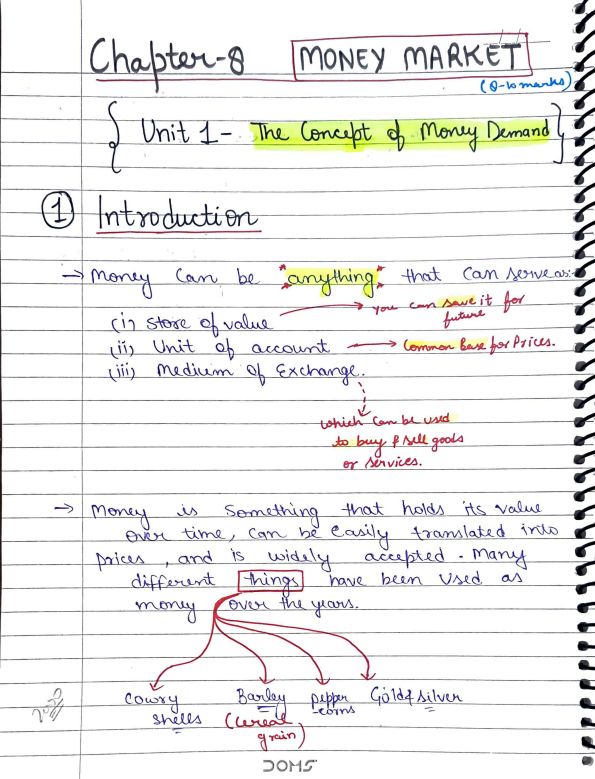 Chapter-8 MONEY MARKET
(8-10 marks)
{ Unit 1 - The Concept of Money Demand }
① Introduction
→ Money can be "anything" that can serve as:-
(i) Store of value → you can save it for future
(ii) Unit of account → Common base for Prices.
(iii) Medium of Exchange.
which can be used
to buy & sell goods
or services.
→ Money is something that holds its value
over time, can be easily translated into
prices, and is widely accepted. Many
different things have been used as
money over the years.
Cowry shells
Barley (cereal grain)
pepper-corns
Gold & silver
DOMS